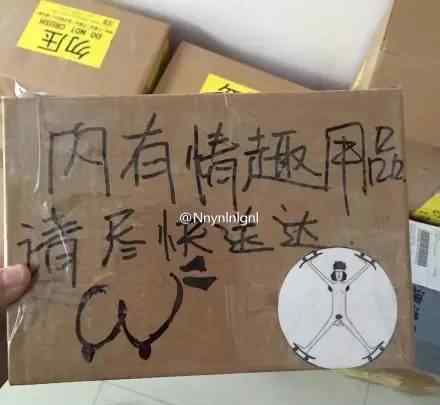 勿压
DO NOT CRUSH
内有情趣用品
@NnynlnIgnl
请尽快送达.